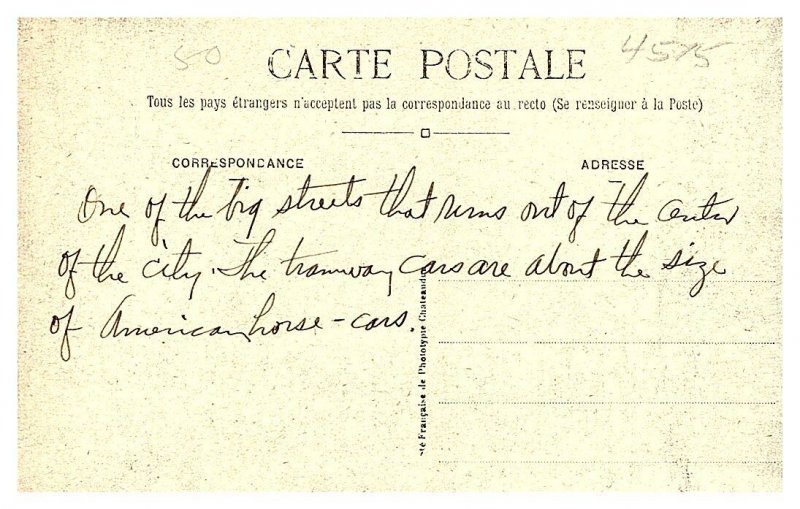 50
4575
CARTE POSTALE
Tous les pays étrangers n'acceptent pas la correspondance au recto (Se renseigner à la Poste)
CORRESPONDANCE
ADRESSE
One of the big streets that runs out of the center
of the city. The tramway cars are about the size
of American horse-cars.
té Française de Phototypie Chateaudun